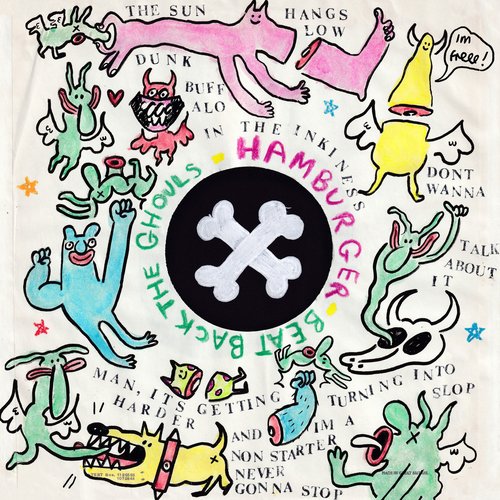 THE SUN HANGS LOW
DUNK BUFFALO IN THE INKINESS
IM Freee!
DONT WANNA
TALK ABOUT IT
HAMBURGER
BEAT BACK THE GHOULS
MAN, ITS GETTING HARDER
AND IM A NON STARTER
NEVER GONNA STOP
TURNING INTO SLOP